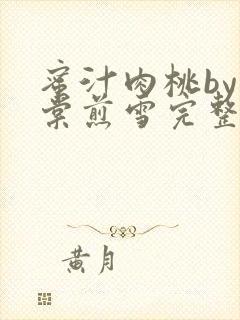 蜜汁肉桃by
棠煎雪完整
黄月